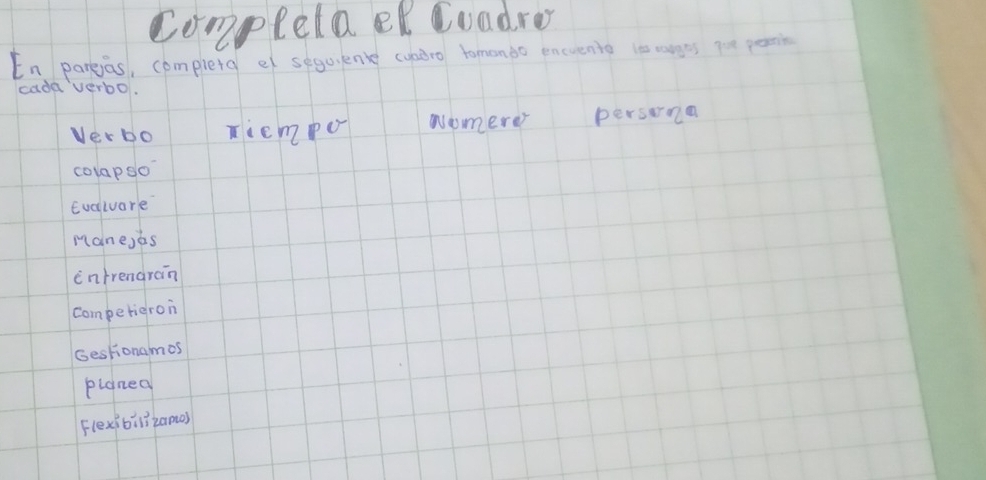 Completa el Cuadro
En parejas, completa el seguiente cuadro tomando encuenta los rasgos que
cada verbo.
Verbo Tiempo Numero Persona
colapsó
Evaluaré
Manejás
Entrenarán
Competierón
Gestionamos
planea
Flexibilizamos